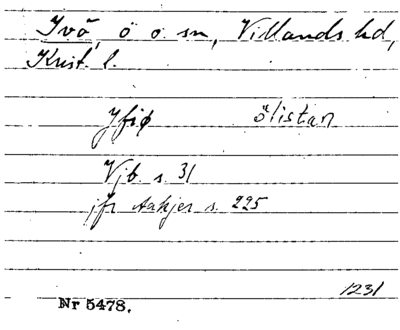 Ivö, ö o. sn, Villands hd,
Krist. l.
Yfiø ölistan
Vjb. s. 31
jfr Aakjer s. 225
1231
Nr 5478.